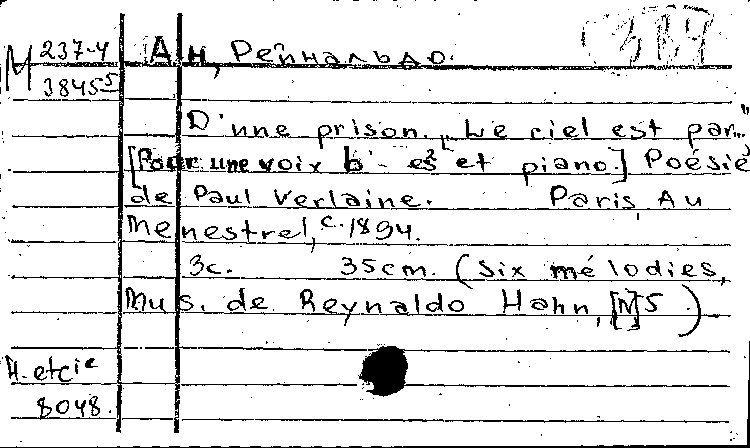 М 237-4
38455
Ан, Рейнальдо.
D'une prison. „Le ciel est par..."
[Pour une voix b'- es² et piano.] Poésie
de Paul Verlaine. Paris, Au
Menestrel, c. 1894.
3c. 35cm. (Six mélodies,
Mus. de Reynaldo Hahn, [N]5)
H. et cie
8048.